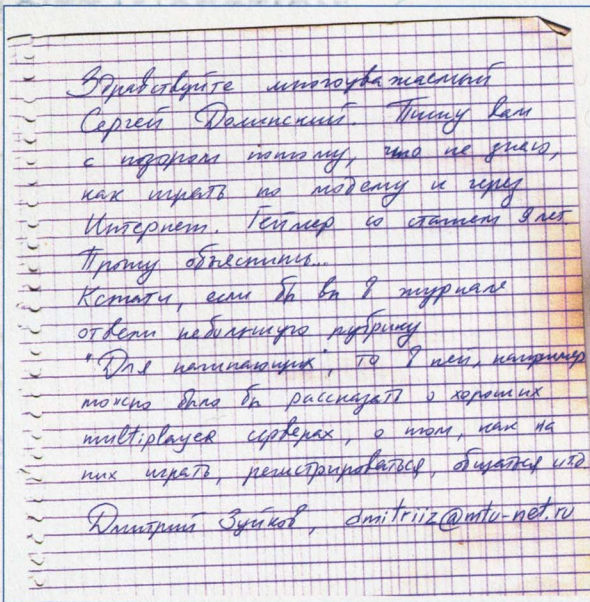 Здравствуйте многоуважаемый
Сергей Долинский. Пишу вам
с позором потому, что не знаю,
как играть по модему и через
Интернет. Геймер со стажем 9 лет.
Прошу объяснить...
Кстати, если бы вы в журнале
отвели небольшую рубрику
"Для начинающих", то в ней, например
можно было бы рассказать о хороших
multiplayer серверах, о том, как на
них играть, регистрироваться, общаться итд
Дмитрий Зуйков, dmitriiz@mtu-net.ru